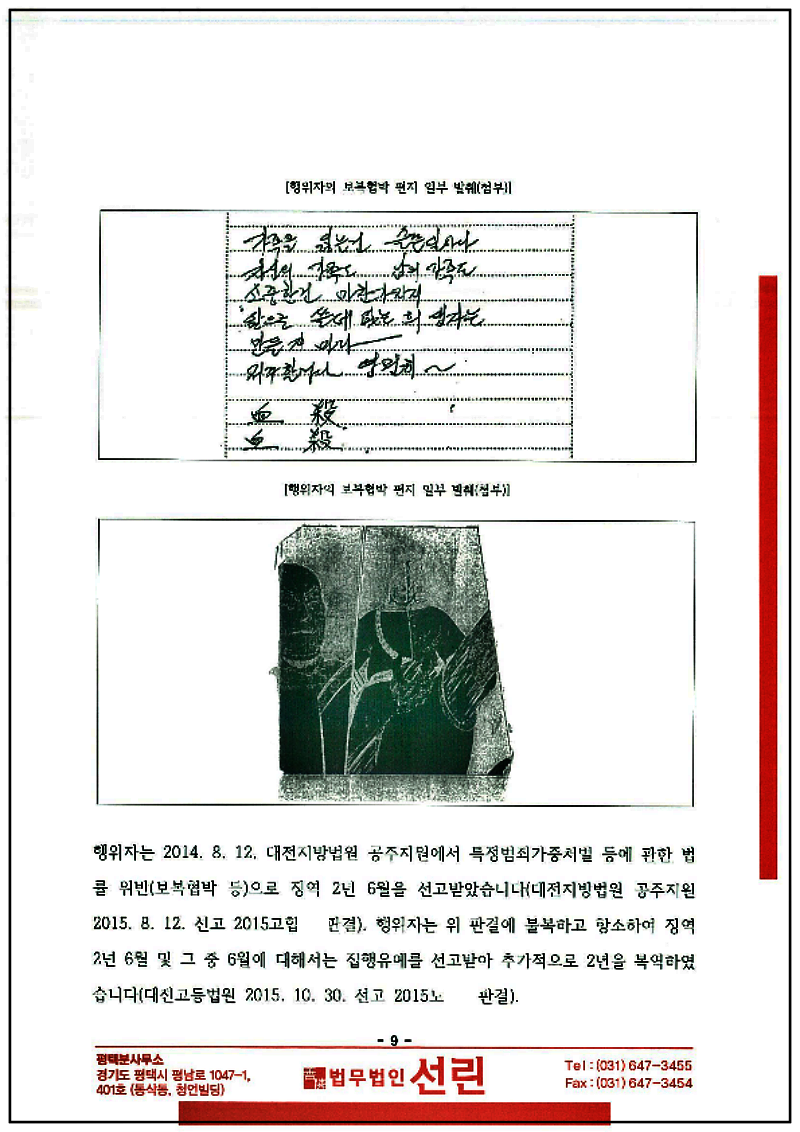 [행위자의 보복협박 편지 일부 발췌(첨부)]
가족을 잃는건 슬픈일이다
자신의 가족도 남의 가족도
소중한건 마찬가지지
앞으로 쓸데 없는 희생자는
만들지 마라
저주할거다 영원히 ~
血 殺
血 殺
[행위자의 보복협박 편지 일부 발췌(첨부)]
행위자는 2014. 8. 12. 대전지방법원 공주지원에서 특정범죄가중처벌 등에 관한 법
률 위반(보복협박 등)으로 징역 2년 6월을 선고받았습니다(대전지방법원 공주지원
2015. 8. 12. 선고 2015고합 판결). 행위자는 위 판결에 불복하고 항소하여 징역
2년 6월 및 그 중 6월에 대해서는 집행유예를 선고받아 추가적으로 2년을 복역하였
습니다(대전고등법원 2015. 10. 30. 선고 2015노 판결).
- 9 -
평택분사무소
경기도 평택시 평남로 1047-1,
401호 (동삭동, 청언빌딩)
법무법인 선린
Tel : (031) 647-3455
Fax : (031) 647-3454